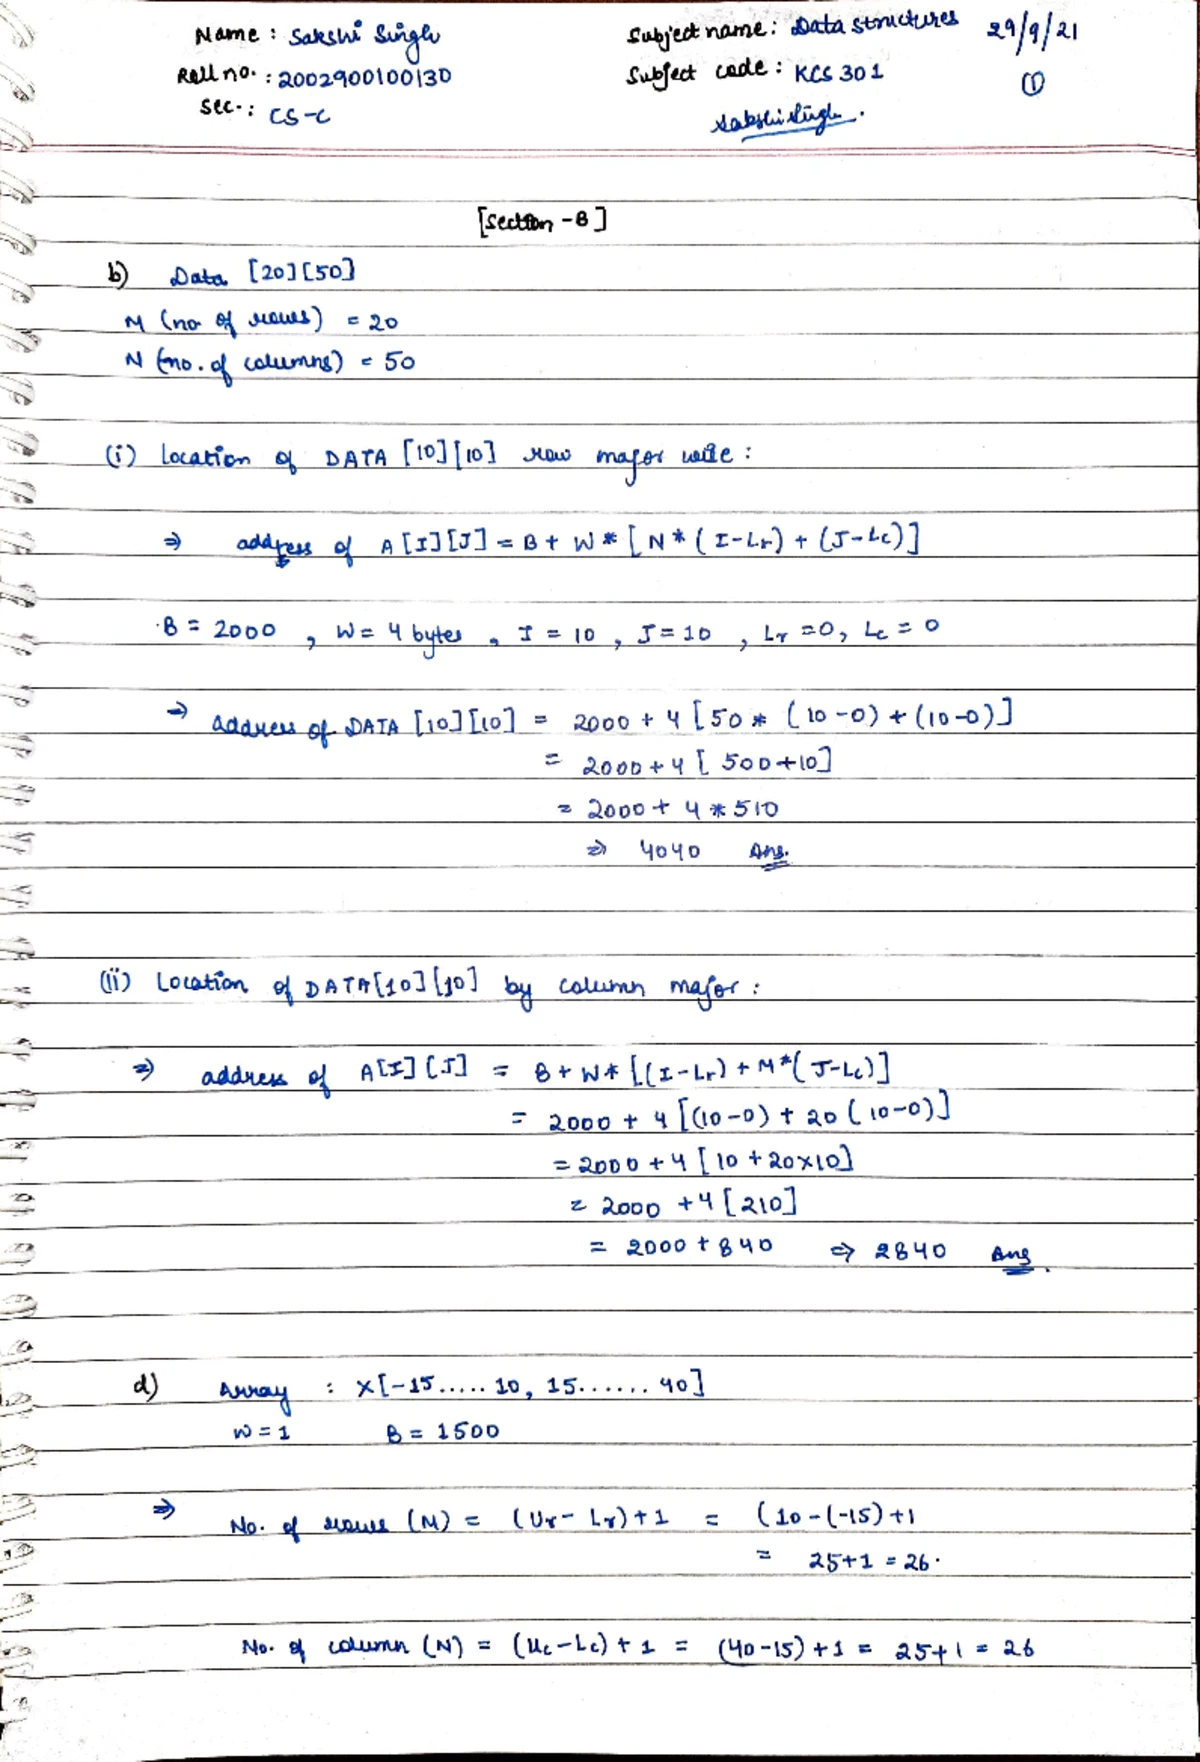 Name : Sakshi Singh
Subject name : Data structures 29/9/21
Roll no. : 2002900100130
Subject code : KCS 301
①
Sec. : CS-C
Sakshi Singh.
[Section - B]
b) Data [20][50]
M (no of rows) = 20
N (no. of columns) = 50
(i) Location of DATA [10][10] row major wise :
⇒ address of A[I][J] = B + W * [N * (I - Lr) + (J - Lc)]
B = 2000 , W = 4 bytes , I = 10 , J = 10 , Lr = 0, Lc = 0
⇒ Address of DATA [10][10] = 2000 + 4 [50 * (10 - 0) + (10 - 0)]
= 2000 + 4 [500 + 10]
= 2000 + 4 * 510
⇒ 4040 Ans.
(ii) Location of DATA[10][10] by column major :
⇒ address of A[I][J] = B + W * [(I - Lr) + M * (J - Lc)]
= 2000 + 4 [(10 - 0) + 20 (10 - 0)]
= 2000 + 4 [10 + 20×10]
= 2000 + 4 [210]
= 2000 + 840 ⇒ 2840 Ans.
d) Array : X[-15..... 10, 15....... 40]
W = 1 B = 1500
⇒ No. of rows (M) = (Ur - Lr) + 1 = (10 - (-15) + 1
= 25 + 1 = 26.
No. of column (N) = (Uc - Lc) + 1 = (40 - 15) + 1 = 25 + 1 = 26